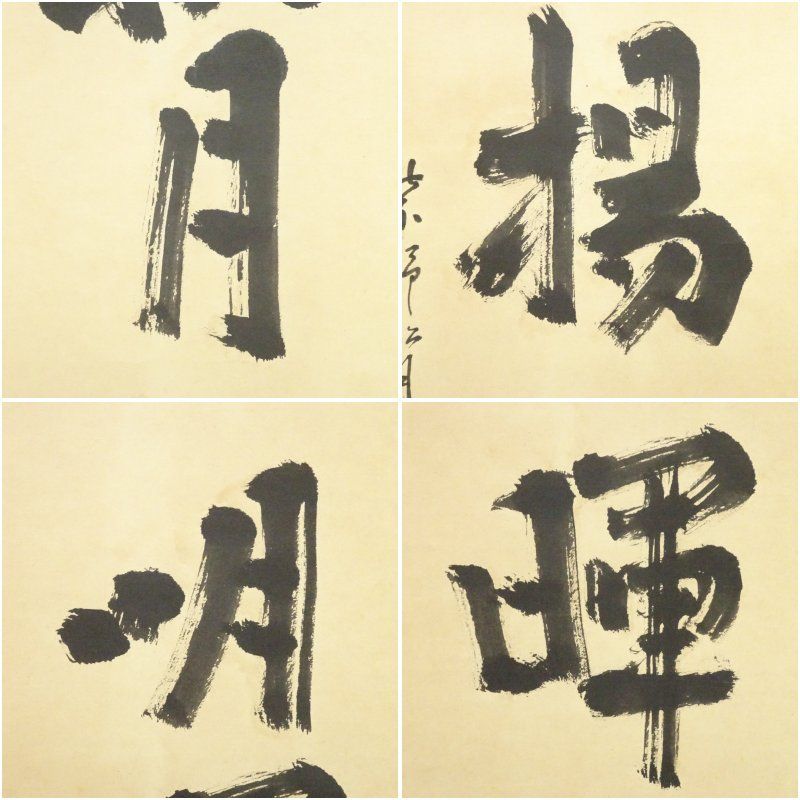 月
揚
明
暉